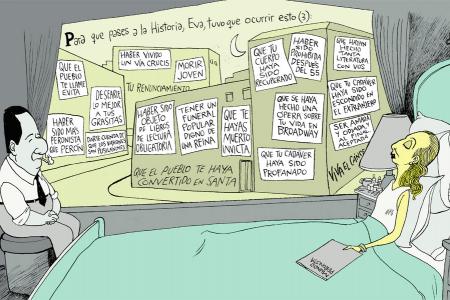 Para que pases a la Historia, Eva, tuvo que ocurrir esto (3):
QUE EL
PUEBLO
TE LLAME
EVITA
HABER VIVIDO
UN VÍA CRUCIS
TU RENUNCIAMIENTO
MORIR
JOVEN
DESEARLE
LO MEJOR
A TUS
GRASITAS
HABER
SIDO MÁS
PERONISTA
QUE PERÓN
DARTE CUENTA DE
QUE LOS
HABER SIDO
OBJETO
DE LIBROS
DE LECTURA
OBLIGATORIA
TENER UN
FUNERAL
POPULAR
DIGNO DE
UNA REINA
QUE EL PUEBLO TE HAYA
CONVERTIDO EN SANTA
QUE TU
CUERPO
HAYA
SIDO
RECUPERADO
HABER
SIDO
PROHIBIDA
DESPUÉS
DEL 55
QUE HAYAN
HECHO
TANTA
LITERATURA
CON VOS
QUE TE
HAYAS
MUERTO
INVICTA
QUE SE HAYA
HECHO UNA
ÓPERA SOBRE
TU VIDA EN
BROADWAY
QUE TU CADÁVER
HAYA SIDO
ESCONDIDO EN
EL EXTRANJERO
QUE TU CADÁVER
HAYA SIDO
PROFANADO
SER AMADA
Y ODIADA, Y
AL FINAL
ACEPTADA
VIVA EL